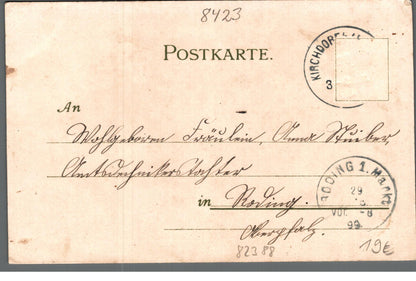 8423
POSTKARTE.
KIRCHDORF
3
An
Wohlgeboren Fräulein, Anna Stuiber,
Amtstechnikerstochter
in Roding.
Oberpfalz.
RODING 1. Markt
29
VOR. -8
99.
82388
19€